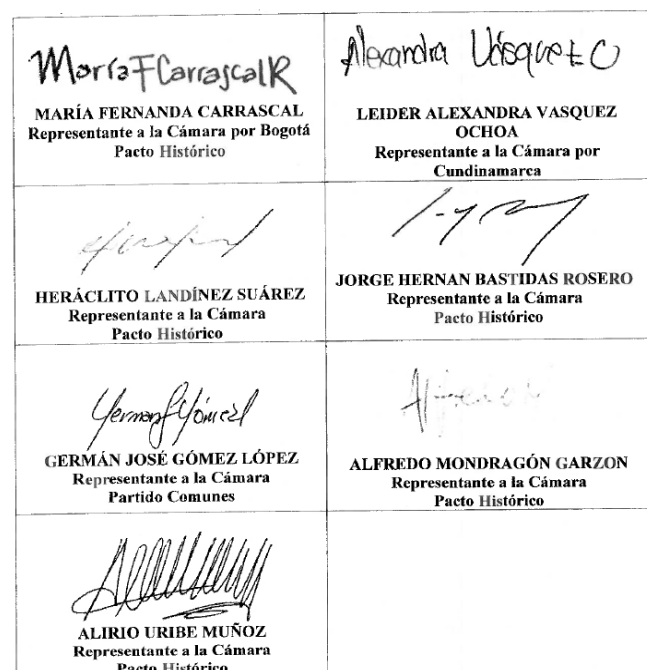 María F Carrascal R
MARÍA FERNANDA CARRASCAL
Representante a la Cámara por Bogotá
Pacto Histórico
Alexandra Vásquez O
LEIDER ALEXANDRA VASQUEZ
OCHOA
Representante a la Cámara por
Cundinamarca
HERÁCLITO LANDÍNEZ SUÁREZ
Representante a la Cámara
Pacto Histórico
JORGE HERNAN BASTIDAS ROSERO
Representante a la Cámara
Pacto Histórico
GERMÁN JOSÉ GÓMEZ LÓPEZ
Representante a la Cámara
Partido Comunes
ALFREDO MONDRAGÓN GARZON
Representante a la Cámara
Pacto Histórico
ALIRIO URIBE MUÑOZ
Representante a la Cámara
Pacto Histórico